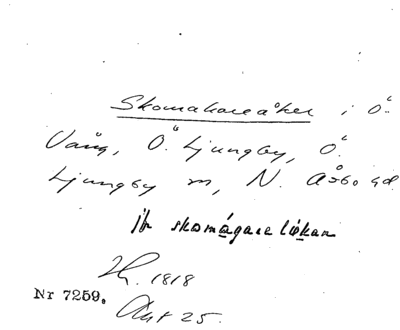 Skomakareåker i Ö.
Vång, Ö. Ljungby, Ö.
Ljungby sn, N. Åsbo hd.
skomágare
1818
Nr 7259.
Akt 25.